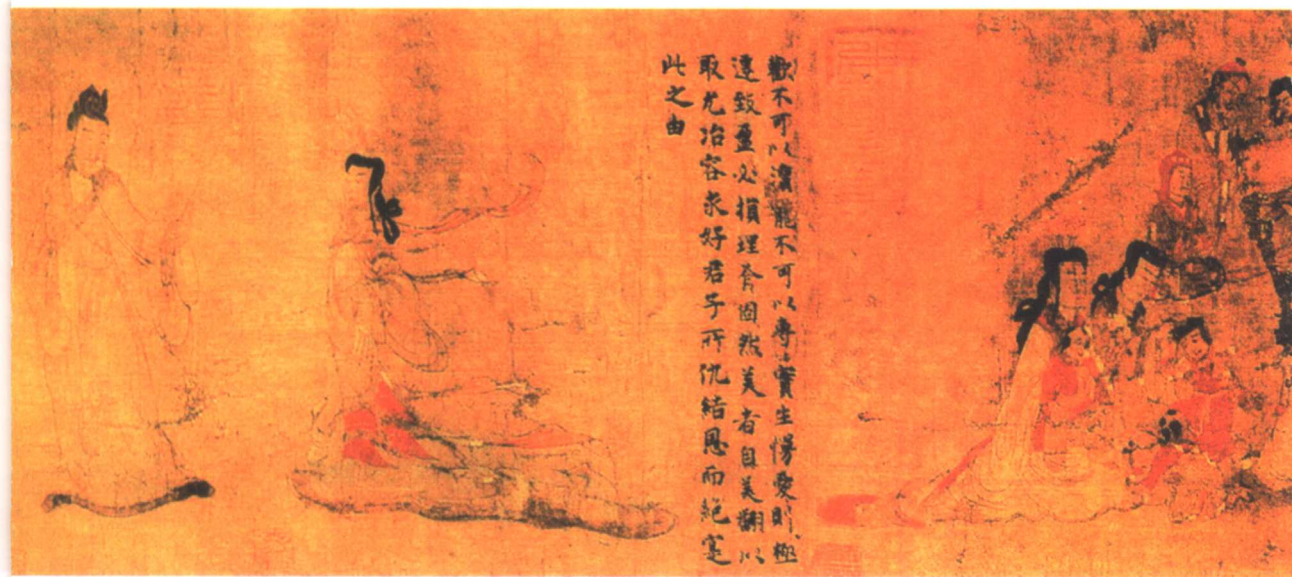 歡不可以瀆寵不可以專〻實生慢愛則極
遷致盈必損理有固然美者自美翩以
取尤冶容求好君子所仇結恩而絕寔
此之由